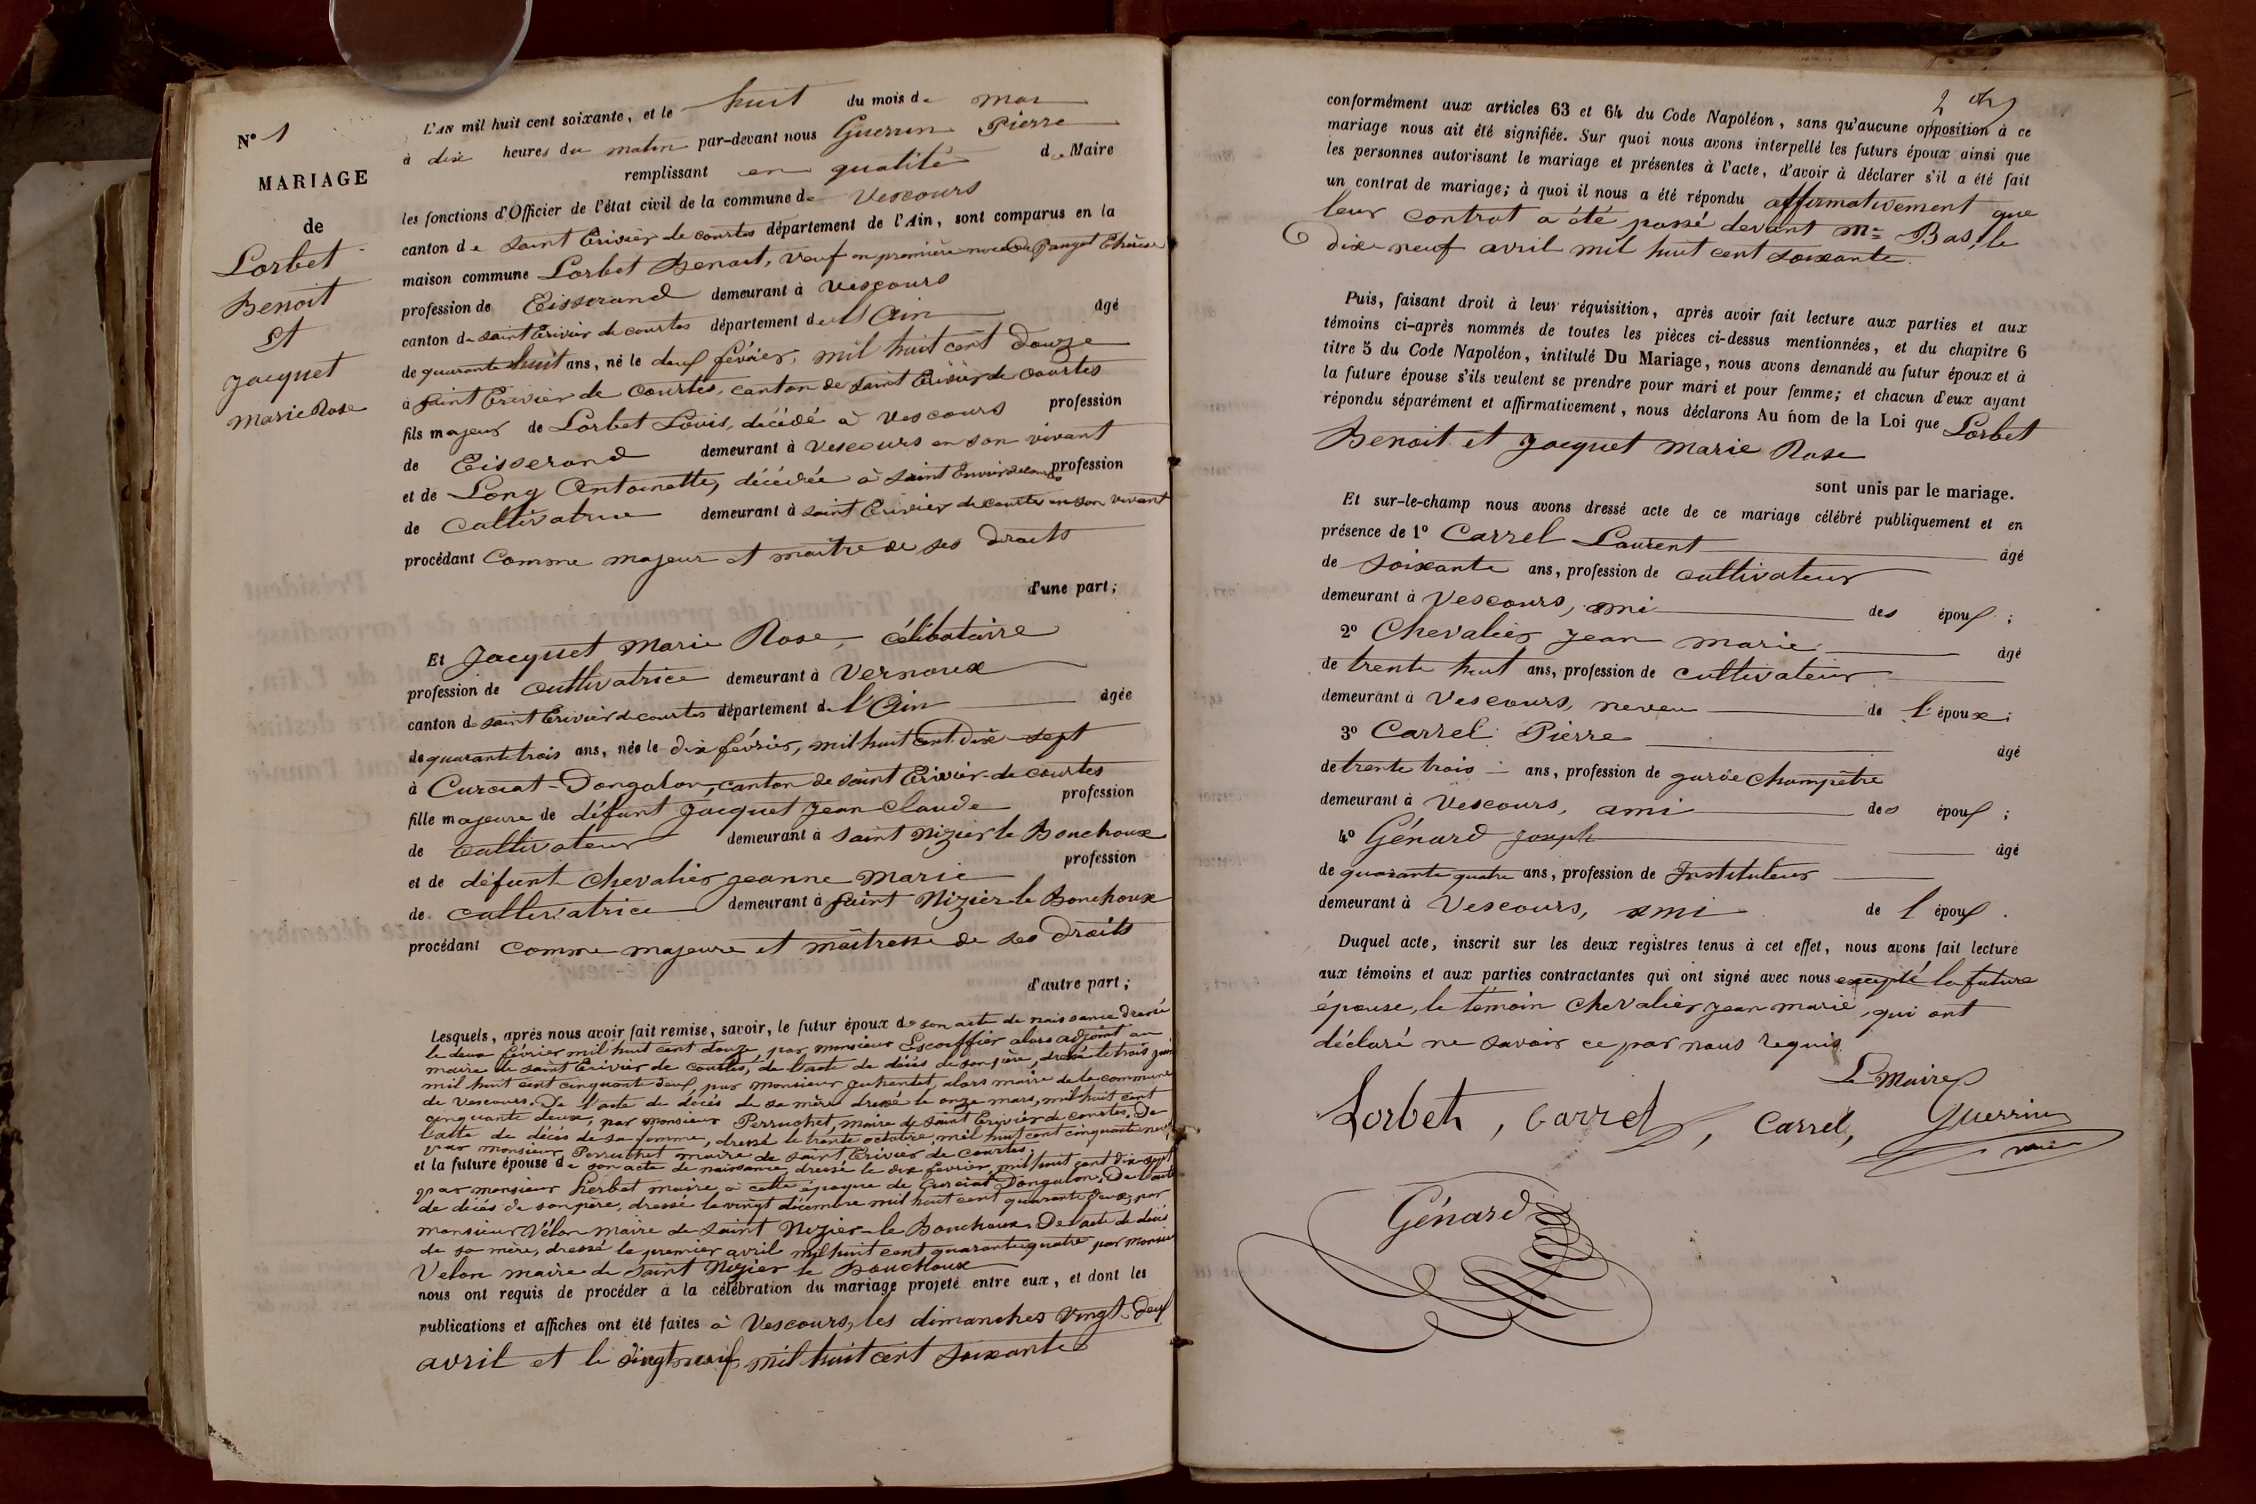 N° 1
MARIAGE
de
Lorbet
Benoit
et
Jacquet
Marie Rose
L'AN mil huit cent soixante, et le huit du mois de mai
à dix heures du matin par-devant nous Guerrin Pierre
remplissant en qualité de Maire
les fonctions d'Officier de l'état civil de la commune de Vescours
canton de Saint Trivier de courtes département de l'Ain, sont comparus en la
maison commune Lorbet Benoit, veuf en première noce de Pauget Thérèse
profession de Tisserand demeurant à Vescours
canton de Saint Trivier de courtes département de l'Ain âgé
de quarante huit ans, né le deux février, mil huit cent douze
à Saint Trivier de Courtes, canton de Saint Trivier de Courtes
fils majeur de Lorbet Louis, décédé à Vescours profession
de Tisserand demeurant à Vescours en son vivant
et de Long Antoinette, décédée à Saint Trivier de Courtes profession
de Cultivatrice demeurant à Saint Trivier de Courtes en son vivant
procédant Comme majeur et maître de ses droits
d'une part;
Et Jacquet Marie Rose, célibataire
profession de cultivatrice demeurant à Vernoux
canton de Saint Trivier de courtes département de l'Ain âgée
de quarante trois ans, née le dix février, mil huit cent dix-sept
à Curciat-Dongalon, canton de Saint Trivier de Courtes
fille majeure de défunt Jacquet Jean Claude profession
de cultivateur demeurant à Saint Nizier le Bouchoux
et de défunt Chevalier Jeanne Marie profession
de cultivatrice demeurant à Saint Nizier le Bouchoux
procédant comme majeure et maîtresse de ses droits
d'autre part;
Lesquels, après nous avoir fait remise, savoir, le futur époux de son acte de naissance dressé
le deux février mil huit cent douze par monsieur Escoffier alors adjoint au
maire de Saint Trivier de Courtes, de l'acte de décès de son père, dressé le trois juin
mil huit cent cinquante deux, par monsieur alors maire de la commune
de Vescours. De l'acte de décès de sa mère dressé le onze mars, mil huit cent
cinquante deux, par monsieur Perruchet, maire de Saint Trivier de Courtes. De
l'acte de décès de sa femme, dressé le trente octobre mil huit cent cinquante neuf,
par monsieur Perruchet maire de Saint Trivier de Courtes;
et la future épouse de son acte de naissance dressé le dix février, mil huit cent dix-sept
par monsieur Herbet maire à cette époque de Curciat Dongalon. De l'acte
de décès de son père, dressé le vingt décembre mil huit cent quarante deux, par
monsieur Vélon maire de Saint Nizier-le Bouchoux. De l'acte de décès
de sa mère, dressé le premier avril mil huit cent quarante quatre par monsieur
Velon maire de Saint Nizier le Bouchoux
nous ont requis de procéder à la célébration du mariage projeté entre eux, et dont les
publications et affiches ont été faites à Vescours, les dimanches vingt-deux
avril et le vingt neuf mil huit cent soixante
2
conformément aux articles 63 et 64 du Code Napoléon, sans qu'aucune opposition à ce
mariage nous ait été signifiée. Sur quoi nous avons interpellé les futurs époux ainsi que
les personnes autorisant le mariage et présentes à l'acte, d'avoir à déclarer s'il a été fait
un contrat de mariage; à quoi il nous a été répondu affirmativement que
leur contrat a été passé devant Me Bas, le
dix-neuf avril mil huit cent soixante.
Puis, faisant droit à leur réquisition, après avoir fait lecture aux parties et aux
témoins ci-après nommés de toutes les pièces ci-dessus mentionnées, et du chapitre 6
titre 5 du Code Napoléon, intitulé Du Mariage, nous avons demandé au futur époux et à
la future épouse s'ils veulent se prendre pour mari et pour femme; et chacun d'eux ayant
répondu séparément et affirmativement, nous déclarons Au nom de la Loi que Lorbet
Benoit et Jacquet Marie Rose
sont unis par le mariage.
Et sur-le-champ nous avons dressé acte de ce mariage célébré publiquement et en
présence de 1° Carrel Laurent âgé
de soixante ans, profession de cultivateur
demeurant à Vescours, ami des époux;
2° Chevalier Jean Marie âgé
de trente huit ans, profession de cultivateur
demeurant à Vescours, neveu de l'époux;
3° Carrel Pierre âgé
de trente trois ans, profession de garde champêtre
demeurant à Vescours, ami des époux;
4° Génard Joseph âgé
de quarante quatre ans, profession de Instituteur
demeurant à Vescours, ami de l'époux.
Duquel acte, inscrit sur les deux registres tenus à cet effet, nous avons fait lecture
aux témoins et aux parties contractantes qui ont signé avec nous excepté la future
épouse, le témoin Chevalier Jean Marie, qui ont
déclaré ne savoir ce par nous requis
Le Maire
Lorbet, Carrel, Carrel, Guerrin
Génard